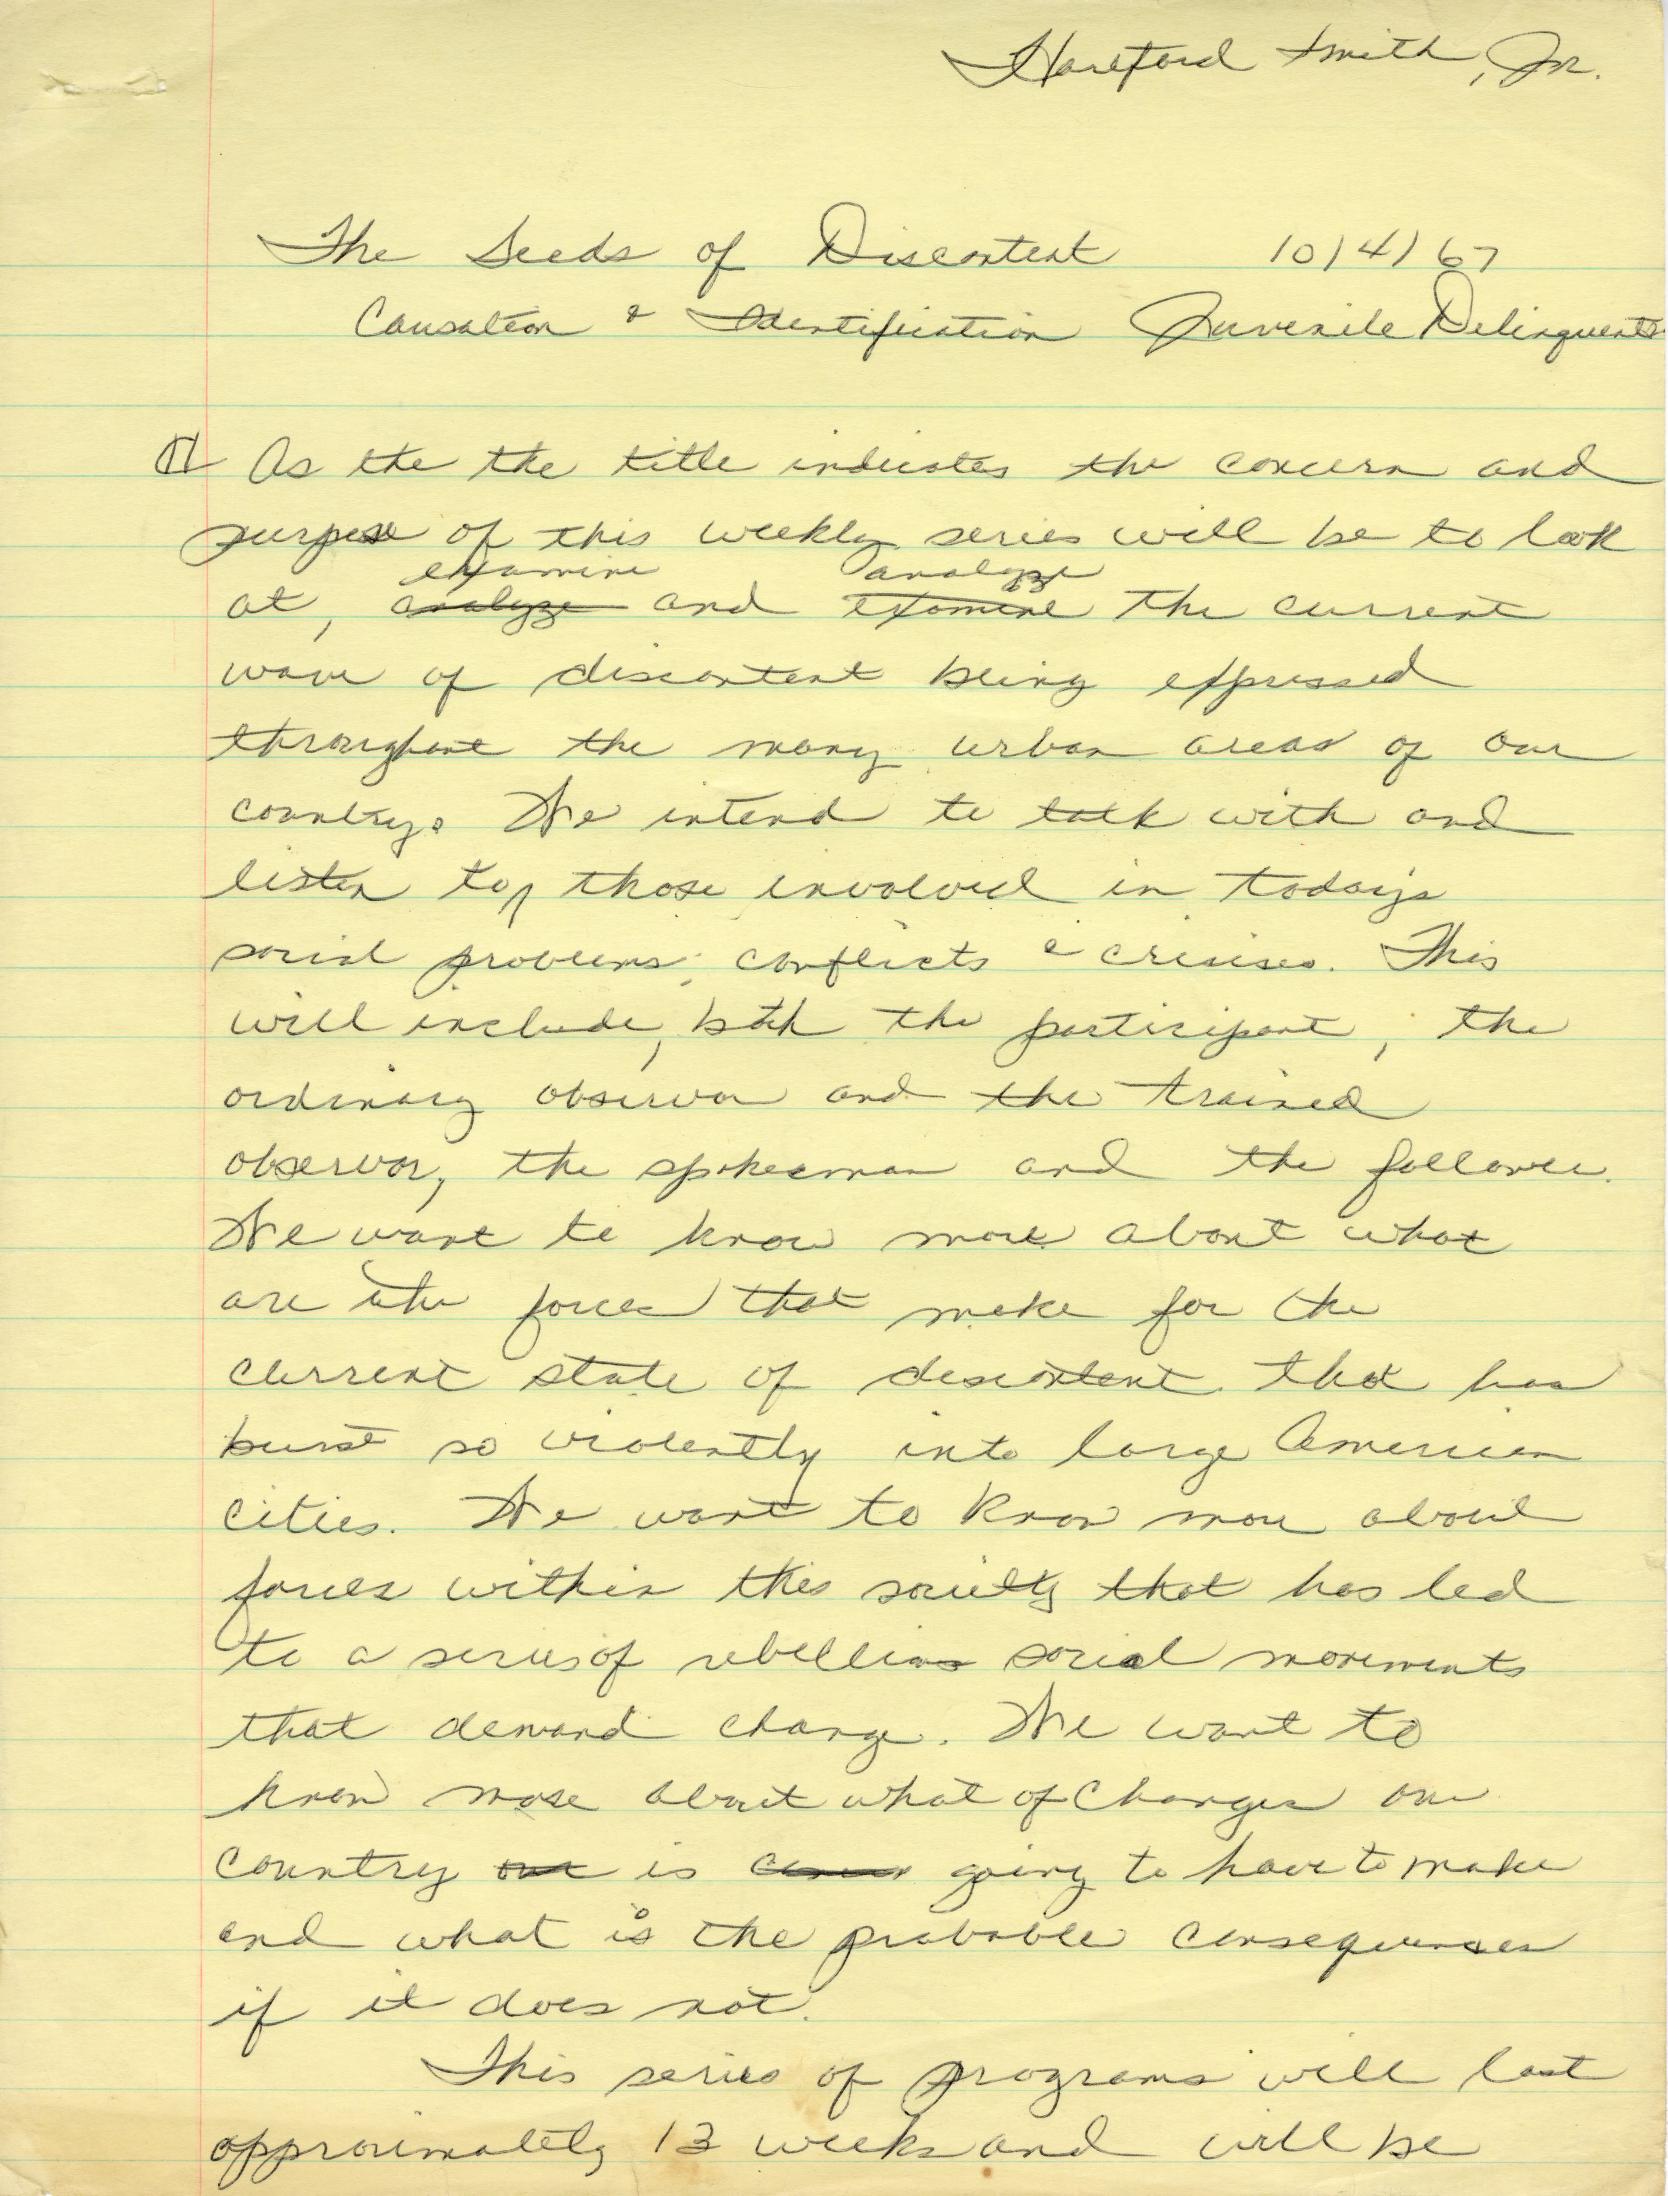 Hartford Smith, Jr.
The Seeds of Discontent 10/4/67
Causation & Identification Juvenile Delinquents
As the the title indicates the concern and
purpose of this weekly series will be to look
examine analyze
at, analyze and examine the current
wave of discontent being expressed
throughout the many urban areas of our
country. We intend to talk with and
listen to, those involved in today's
social problems, conflicts & crisises. This
will include, both the participant, the
ordinary observor and the trained
observor, the spokesman and the follower.
We want to know more about what
are the forces that make for the
current state of discontent that has
burst so violently into large American
cities. We want to know more about
forces within this society that has led
to a series of rebellions social movements
that demand change. We want to
know more about what of changes our
country is going to have to make
and what is the probable consequences
if it does not.
This series of programs will last
approximately 13 weeks and will be